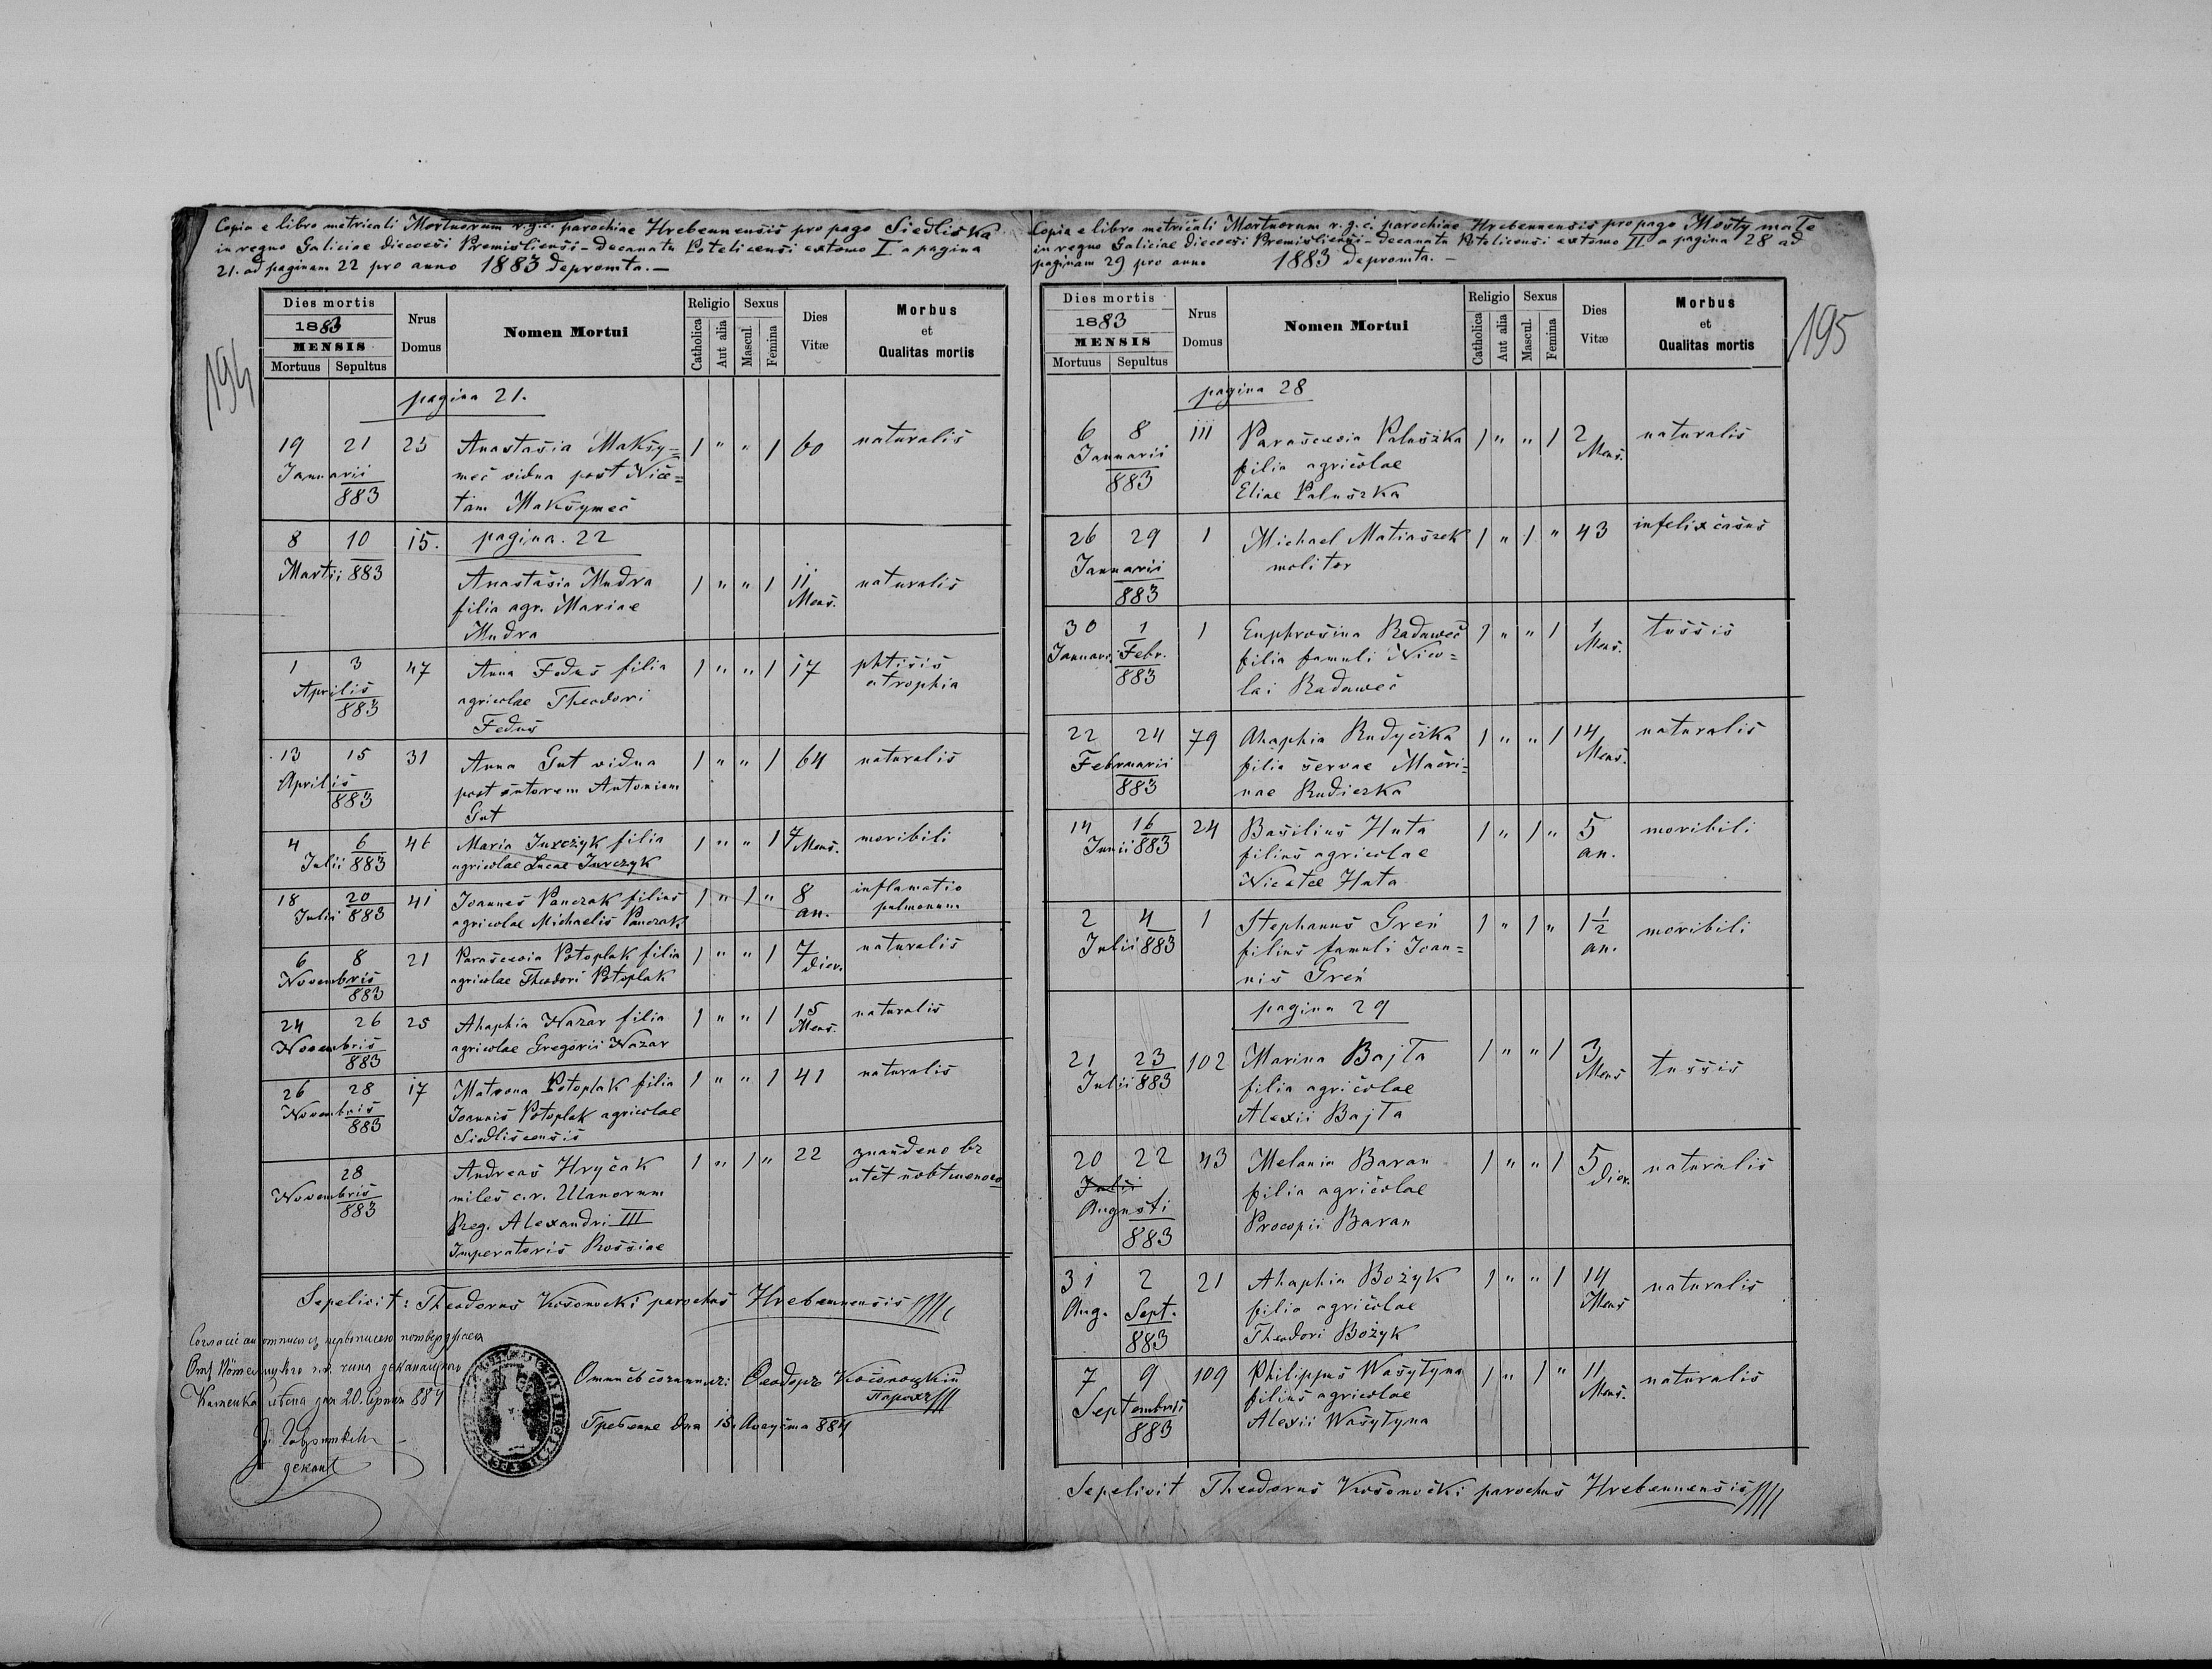 Copia e libro metricali Mortuorum r.g.c. parochiae Hrebennensis pro pago Siedliska
in regno Galiciae diocesi Premisliensi - decanatu Potelicensi ex tomo I a pagina
21. ad paginam 22 pro anno 1883 depromta. —
194
Dies mortis
1883
MENSIS
Mortuus Sepultus
Nrus Domus
Nomen Mortui
Religio
Catholica Aut alia
Sexus
Mascul. Femina
Dies Vitæ
Morbus et Qualitas mortis
pagina 21.
19 21 25 Anastasia Maksy= 1 " " 1 60 naturalis
Januarii mec vidua post Nice=
883 tam Maksymec
8 10 15. pagina. 22
Martii 883
Anastasia Mudra 1 " " 1 11 naturalis
filia agr. Mariae Mens.
Mudra
1 3 47 Anna Fedus filia 1 " " 1 17 phtisis
Aprilis agricolae Theodori atrophia
883 Fedus
13 15 31 Anna Gut vidua 1 " " 1 64 naturalis
Aprilis post sutorem Antonium
883 Gut
4 6 46 Maria Jurczyk filia 1 " " 1 7 Mens. moribili
Julii 883 agricolae Lucae Jurczyk
18 20 41 Joannes Panczak filius 1 " 1 " 8 inflamatio
Julii 883 agricolae Michaelis Panczak an. pulmonum
6 8 21 Parascevia Potoplak filia 1 " " 1 7 dier. naturalis
Novembris agricolae Theodori Potoplak
883
24 26 25 Ahaphia Nazar filia 1 " " 1 15 naturalis
Novembris agricolae Gregorii Nazar Mens.
883
26 28 17 Matrona Potoplak filia 1 " " 1 41 naturalis
Novembris Joannis Potoplak agricolae
883 Siedliscensis
28 Andreas Hryčak 1 " 1 " 22
Novembris miles c.r. Ulanorum
883 Reg. Alexandri III
Imperatoris Rossiae
Sepelivit: Theodorus Kosonocki parochus Hrebennensis
Ѳеодоръ Косоноцкій
Парохъ
Гребенне дня 15. Августа 884
деканъ
Copia e libro metricali Mortuorum r.g.c. parochiae Hrebennensis pro pago Mosty małe
in regno Galiciae diecesi Premisliensi - decanatu Potelicensi ex tomo II a pagina 28 ad
paginam 29 pro anno 1883 depromta. —
195
Dies mortis
1883
MENSIS
Mortuus Sepultus
Nrus Domus
Nomen Mortui
Religio
Catholica Aut alia
Sexus
Mascul. Femina
Dies Vitæ
Morbus et Qualitas mortis
pagina 28
6 8 111 Parascevia Paluszka 1 " " 1 2 naturalis
Januarii filia agricolae Mens.
883 Eliae Paluszka
26 29 1 Michael Matiaszek 1 " 1 " 43 infelix casus
Januarii molitor
883
30 1 1 Euphrosina Radawec 1 " " 1 1 tussis
Januarii Febr. filia famuli Nico= Mens.
883 lai Radawec
22 24 79 Ahaphia Rudyczka 1 " " 1 14 naturalis
Februarii filia servae Macri= Mens.
883 nae Rudiczka
14 16 24 Basilius Huta 1 " 1 " 5 moribili
Junii 883 filius agricolae an.
Nicetae Huta
2 4 1 Stephanus Greń 1 " 1 " 1 1/2 moribili
Julii 883 filius famuli Joan= an.
nis Greń
pagina 29
21 23 102 Marina Bajta 1 " " 1 3 tussis
Julii 883 filia agricolae Mens
Alexii Bajta
20 22 43 Melania Baran 1 " " 1 5 dier. naturalis
Julii filia agricolae
Augusti Procopii Baran
883
31 2 21 Ahaphia Bożyk 1 " " 1 14 naturalis
Aug. Sept. filia agricolae Mens
883 Theodori Bożyk
7 9 109 Philippus Wasytyna 1 " 1 " 11 naturalis
Septembris filius agricolae Mens.
883 Alexii Wasytyna
Sepelivit Theodorus Kosonocki parochus Hrebennensis